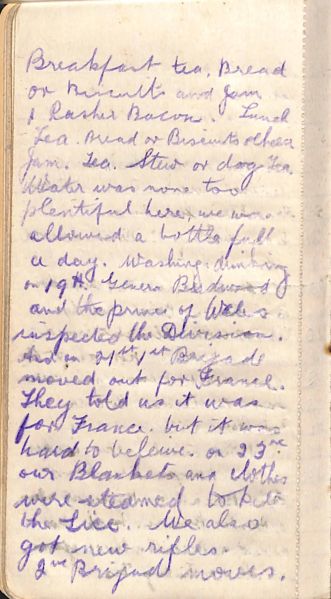 Breakfast tea. Bread
or Biscuits and Jam
1 Rasher Bacon. Lunch
Tea. Bread or Biscuits cheese
Jam. Tea. Stew or dog Tea
Water was none too
plentiful here, we were
allowed a bottle full
a day. Washing drinking
on 19th. General Birdwood
and the prince of Wales
inspected the Division.
And on 21st 1st Brigade
moved out for France.
They told us it was
for France. but it was
hard to beleive. on 23rd
our Blankets and clothes
were steamed to
the Lice. We also
got new rifles.
2nd Brigade moves.